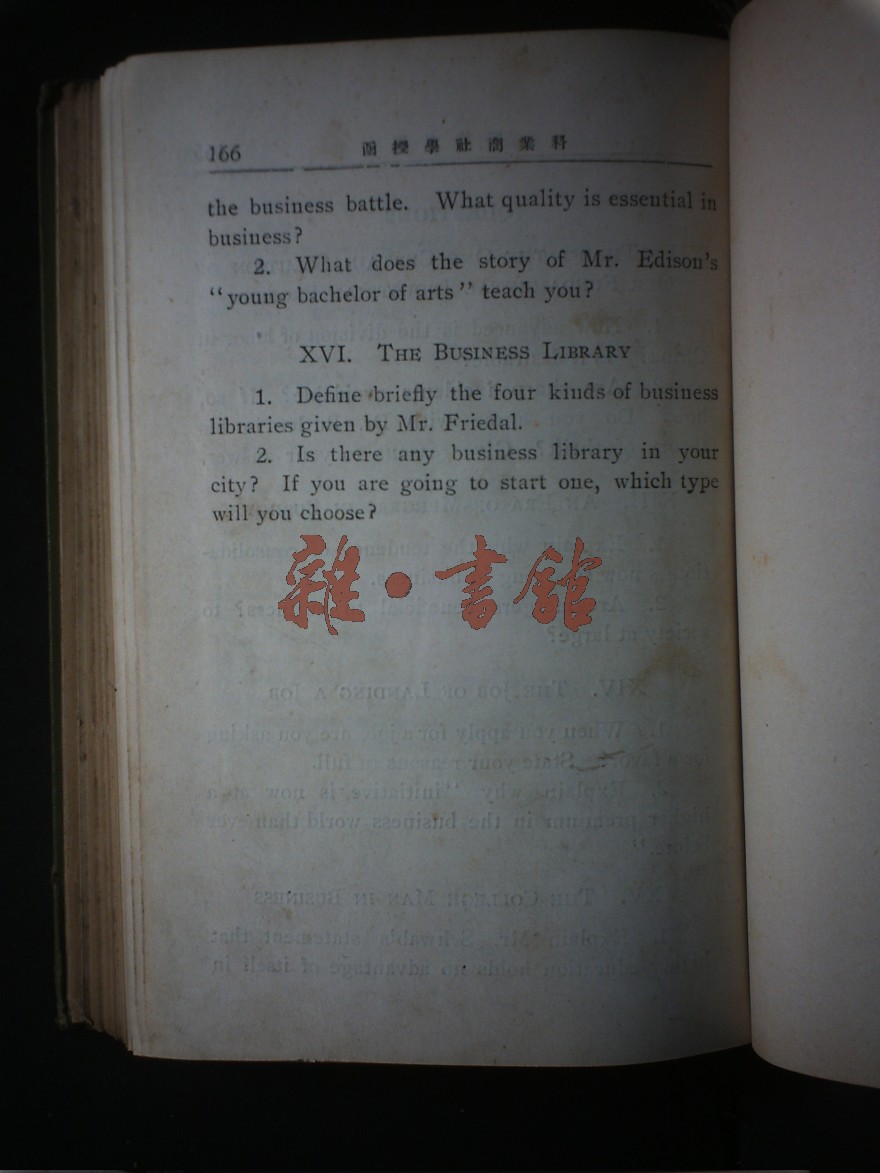 166 函授學社商業科
the business battle. What quality is essential in
business?
2. What does the story of Mr. Edison's
“young bachelor of arts” teach you?
XVI. THE BUSINESS LIBRARY
1. Define briefly the four kinds of business
libraries given by Mr. Friedal.
2. Is there any business library in your
city? If you are going to start one, which type
will you choose?
雜·書館